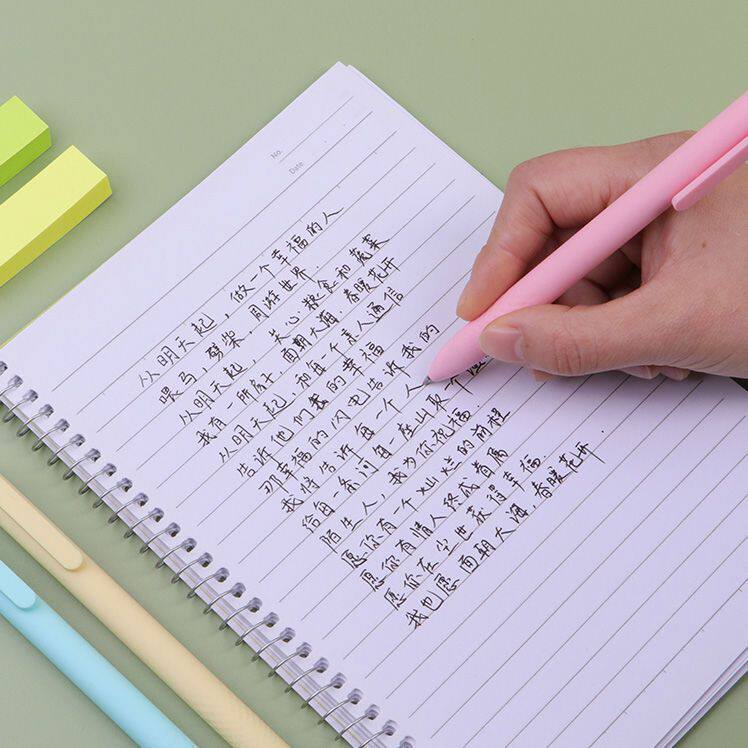 No.
Date
从明天起,做一个幸福的人
喂马,劈柴,周游世界
从明天起,关心粮食和蔬菜
我有一所房子,面朝大海,春暖花开
从明天起,和每一个亲人通信
告诉他们我的幸福
那幸福的闪电告诉我的
我将告诉每一个人
给每一条河每一座山取个
陌生人,我为你祝福
愿你有一个灿烂的前程
愿你有情人终成眷属
愿你在尘世获得幸福.
我也愿面朝大海,春暖花开